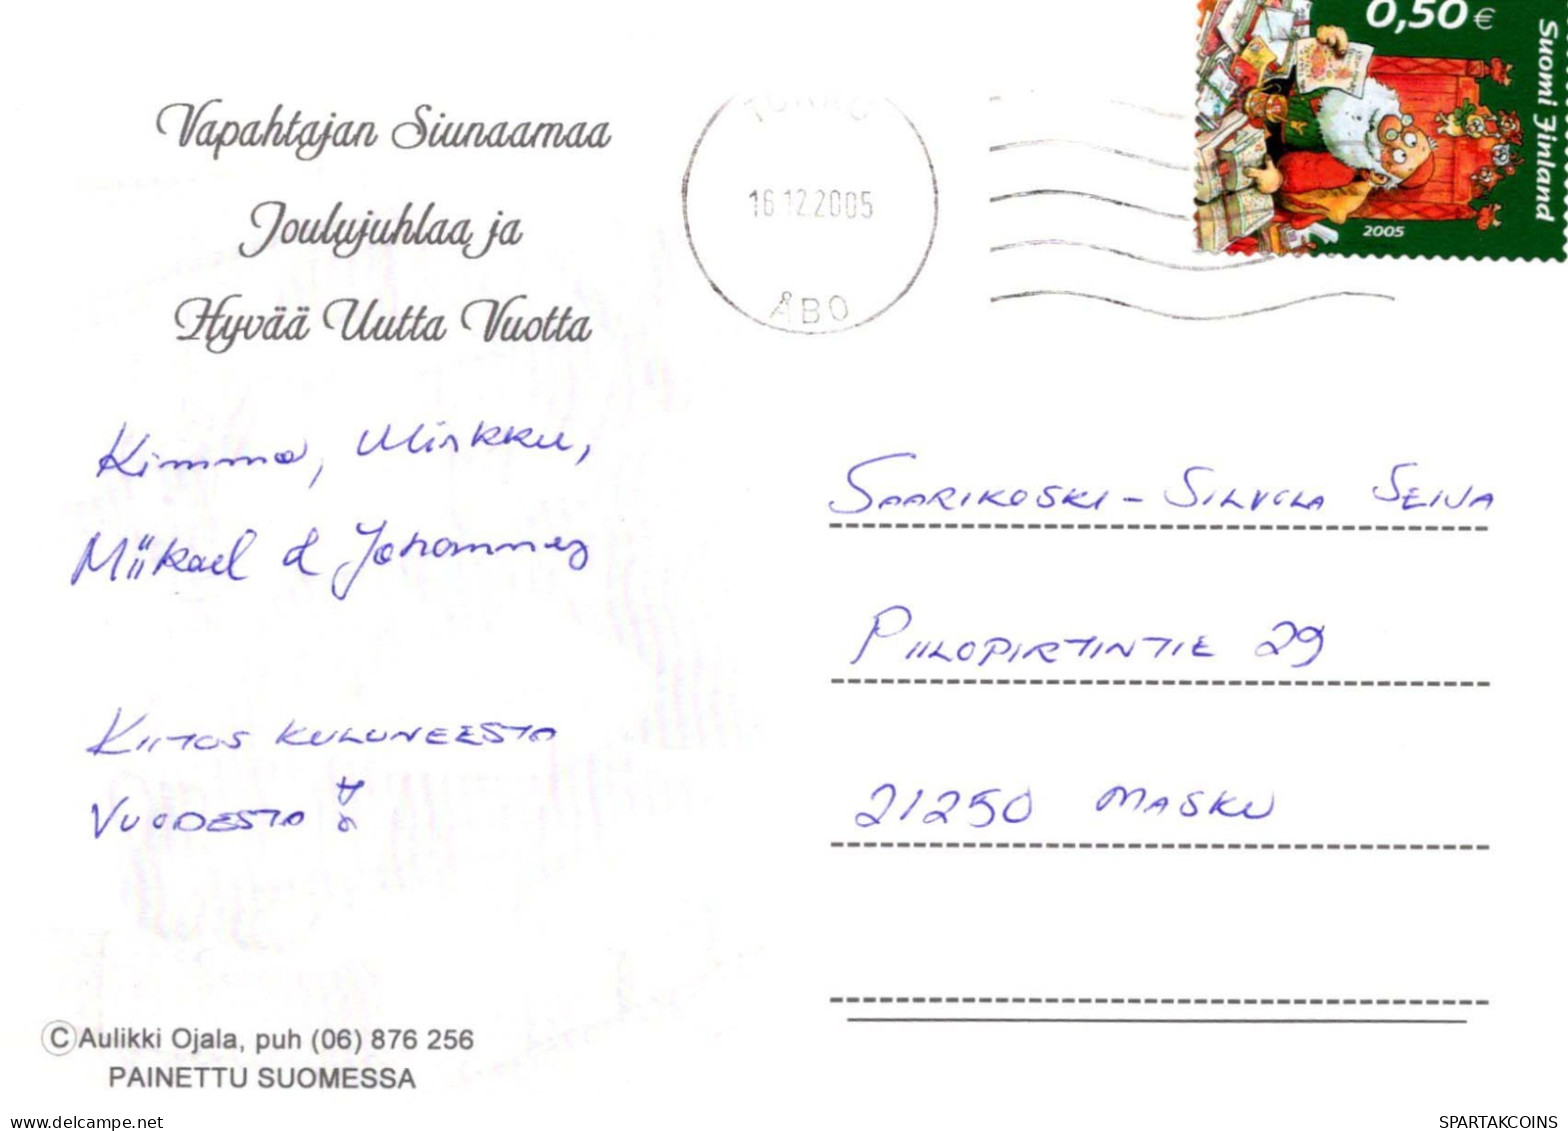 0,50 €
Suomi Finland
2005
TURKU
16.12.2005
ÅBO
Vapahtajan Siunaamaa
Joulujuhlaa ja
Hyvää Uutta Vuotta
Kimmo, Mirkku,
Miikael & Johannes
KIITOS KULUNEESTA
VUODESTA
SAARIKOSKI - SILVOLA SEIJA
PIILOPIRTINTIE 29
21250 MASKU
© Aulikki Ojala, puh (06) 876 256
PAINETTU SUOMESSA
www.delcampe.net
SPARTAKCOINS